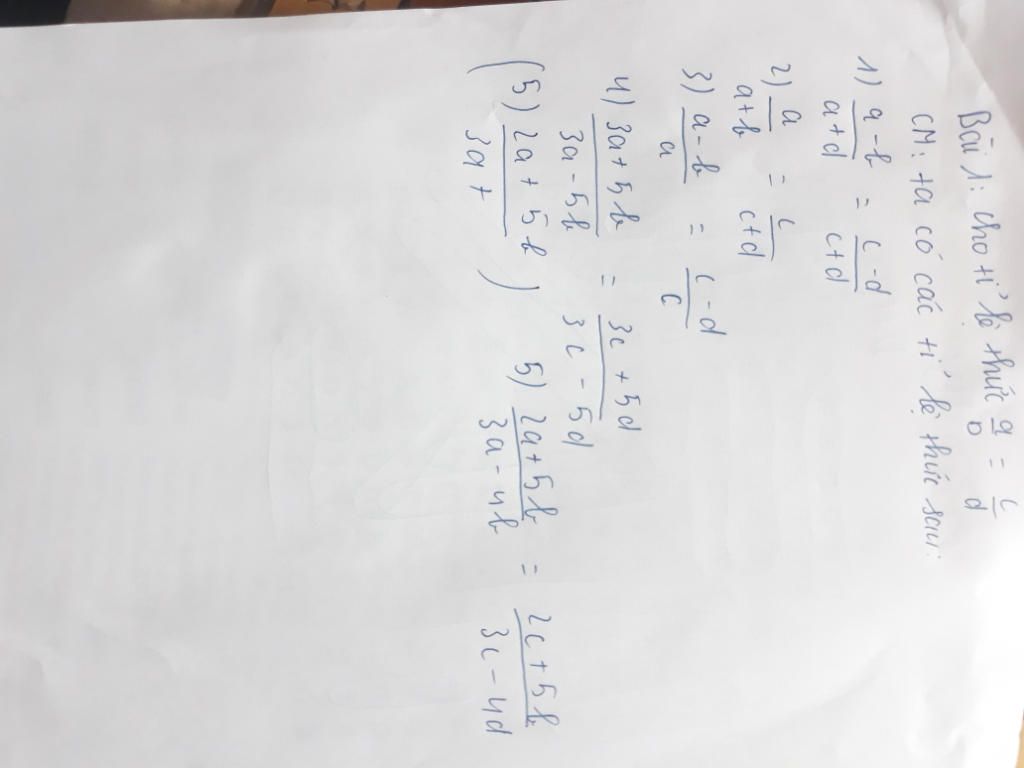 Bài 1: Cho tỉ lệ thức a/b = c/d
CM: ta có các tỉ lệ thức sau:
1) a-b/a+d = c-d/c+d
2) a/a+b = c/c+d
3) a-b/a = c-d/c
4) 3a+5b/3a-5b = 3c+5d/3c-5d
(5) 2a+5b/3a+) 5) 2a+5b/3a-4b = 2c+5b/3c-4d